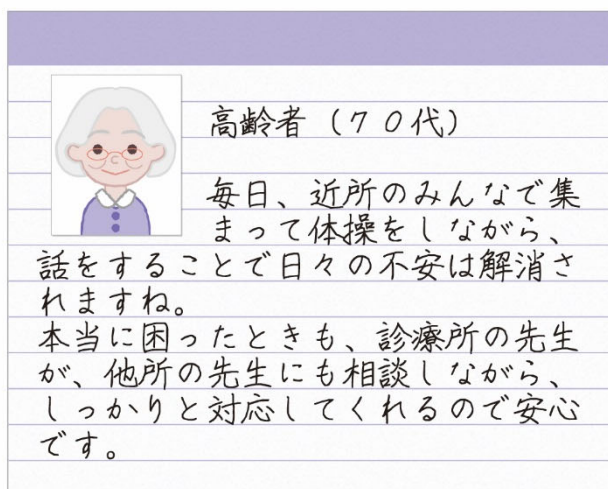 高齢者（７０代）
毎日、近所のみんなで集
まって体操をしながら、
話をすることで日々の不安は解消さ
れますね。
本当に困ったときも、診療所の先生
が、他所の先生にも相談しながら、
しっかりと対応してくれるので安心
です。